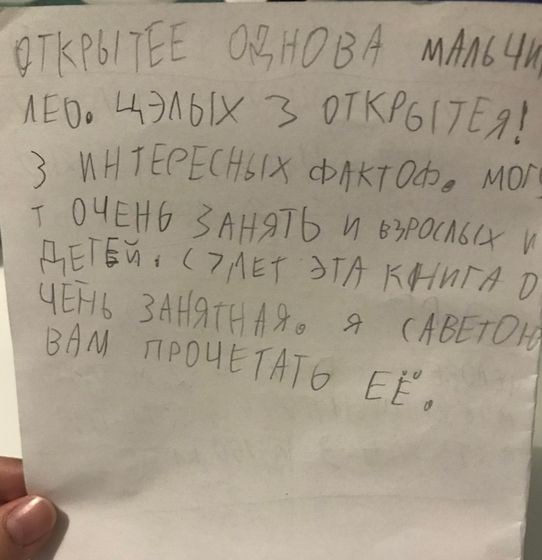 ОТКРЫТЕЕ ОДНОВА МАЛЬЧИ
ЛЕО. ЦЭЛЫХ 3 ОТКРЫТЕЯ!
3 ИНТЕРЕСНЫХ ФАКТОФ. МОГУ
Т ОЧЕНЬ ЗАНЯТЬ И ВЗРОСЛЫХ И
ДЕТЕЙ. С 7 ЛЕТ ЭТА КНИГА О
ЧЕНЬ ЗАНЯТНАЯ. Я САВЕТОЮ
ВАМ ПРОЧЕТАТЬ ЕЁ.